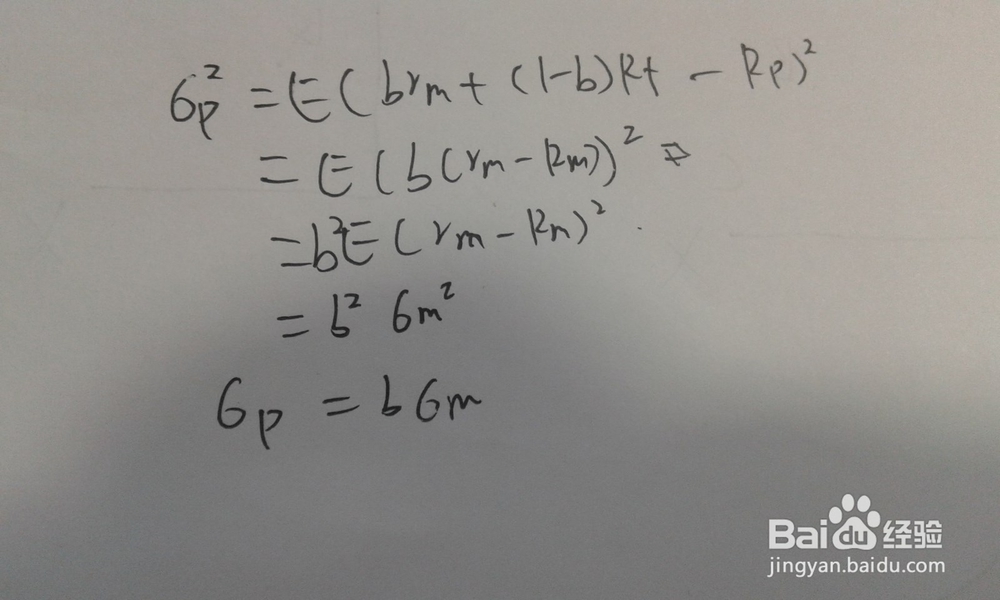 σp² = E(brm + (1-b)Rf - Rp)²
= E(b(rm - Rm))²
= b²E(rm - Rm)²
= b² σm²
σp = bσm
Bai du 经验
jingyan.baidu.com